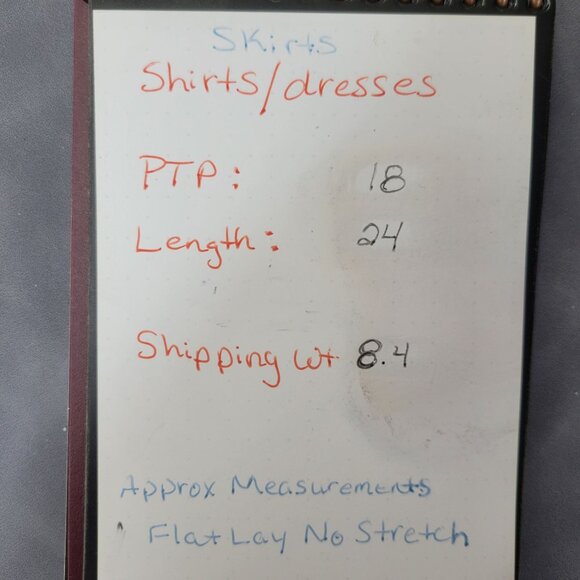 Skirts
Shirts/dresses
PTP: 18
Length: 24
Shipping Wt 8.4
Approx Measurements
Flat Lay No Stretch